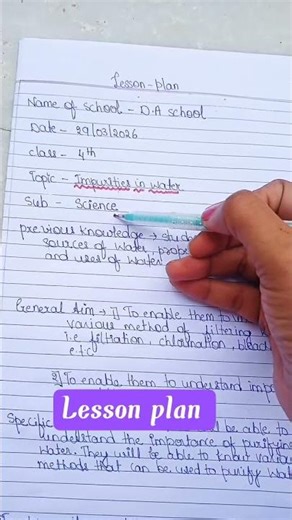 Lesson-plan
Name of school - D.A school
Date - 29/03/2026
class - 4th
Topic - Impurties in water
Sub - Science
previous knowledge → stud
sources of water, prope
and uses of water
General Aim → 1] To enable them to
various method of filtering
i.e filtration, chlorination, bleac
e.t.c
2] To enable them to understand imp
Lesson plan
Specific be able to
understand the importance of purifying
water. They will be able to know variou
methods that can be used to purify wate